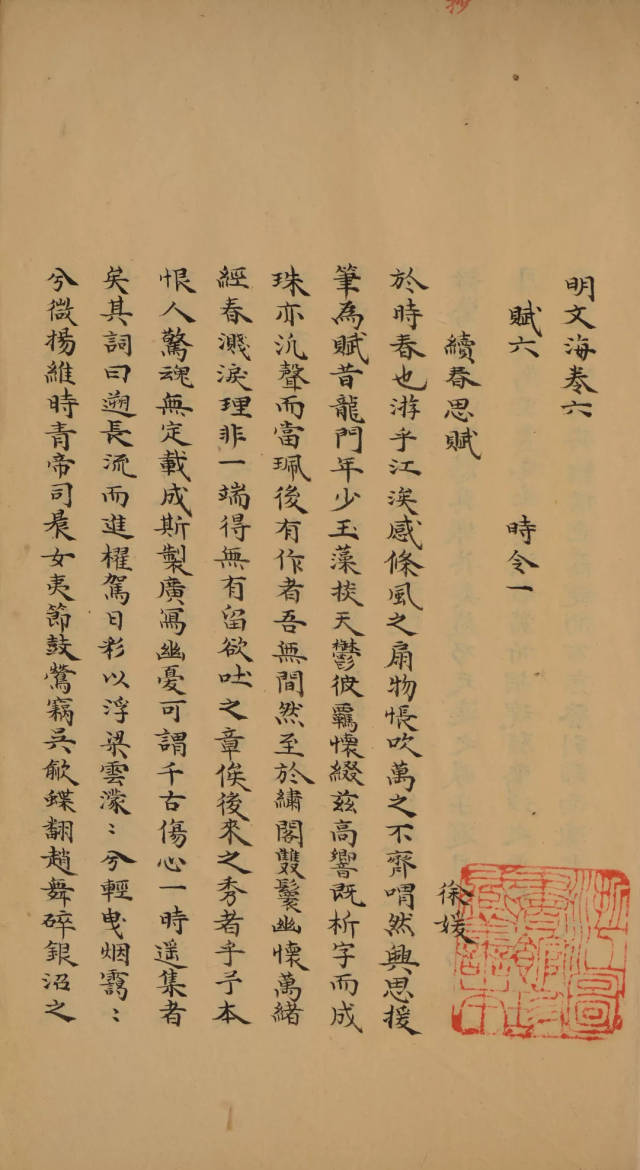 明文海卷六
賦六　時令一
續春思賦　徐媛
於時春也游乎江涘感條風之扇物悵吹萬之不齊喟然興思援
筆為賦昔龍門年少玉藻掞天鬱彼覊懷綴兹高響既析字而成
珠亦沉聲而當珮後有作者吾無間然至於繡閣雙鬟幽懷萬緒
經春濺淚理非一端得無有留欲吐之章俟後來之秀者乎予本
恨人驚魂無定載成斯製廣寫幽憂可謂千古傷心一時遥集者
矣其詞曰遡長流而進櫂駕日彩以浮梁雲濛〻兮輕曳烟靄〻
兮微揚維時青帝司晨女夷節鼓鶯竊吳歈蝶翻趙舞碎銀沼之